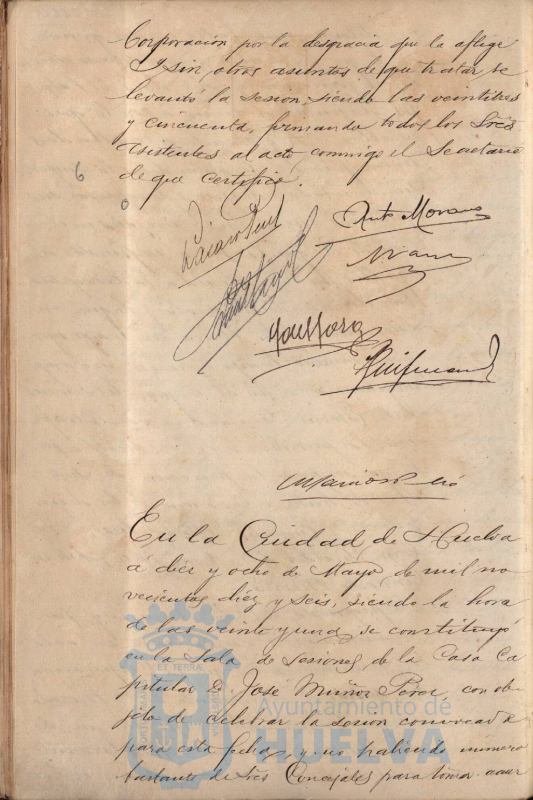 Corporación por la desgracia que la aflige
Y sin otros asuntos de que tratar se
levantó la sesion, siendo las veintitres
y cincuenta, firmando todos los Sres
asistentes al acto, conmigo el Secretario
de que certifico.
6
En la Ciudad de Huelva
á diez y ocho de Mayo de mil no
vecientos diez y seis, siendo la hora
de las veinte y una, se constituyó
en la Sala de Sesiones de la Casa Ca
pitular D. José Muñoz Perez, con ob
jeto de celebrar la sesion convocada
para esta fecha, y no habiendo numero
bastante de Sres Concejales para tomar acuer
Ayuntamiento de
HUELVA